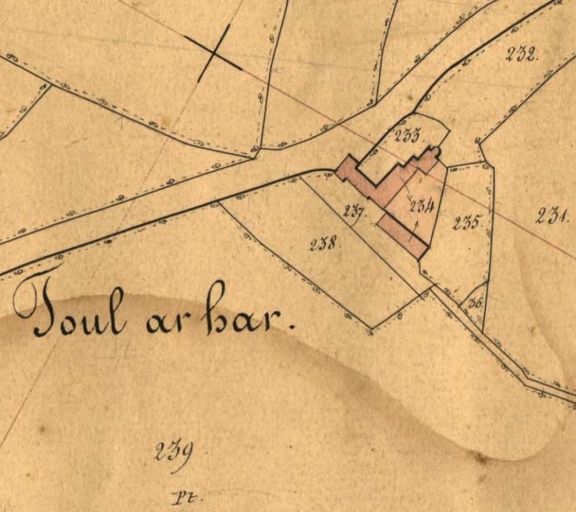 232.
233.
234
237.
235.
231.
238.
36.
Toul ar har.
239
Pt.